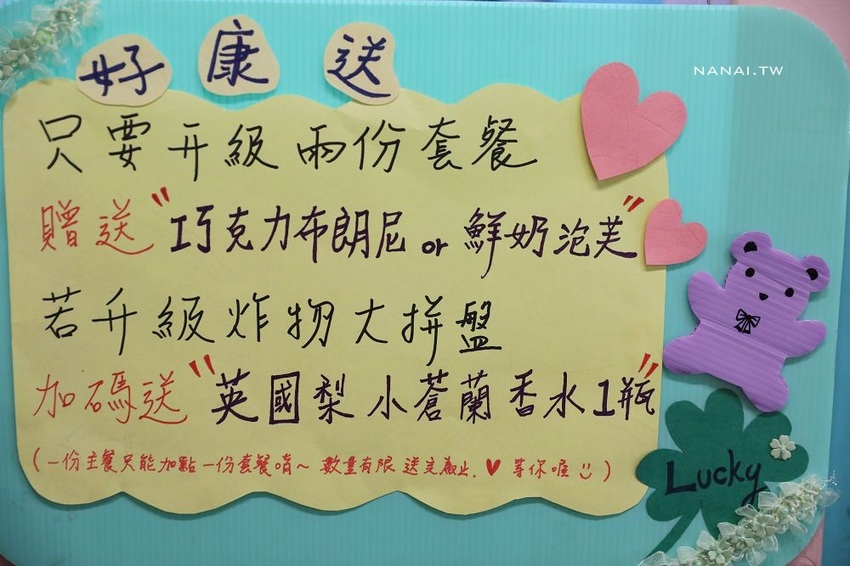 好康送
NANAI.TW
只要升級兩份套餐
贈送"巧克力布朗尼 or 鮮奶泡芙"
若升級炸物大拼盤
加碼送"英國梨小蒼蘭香水1瓶"
(一份主餐只能加點一份套餐唷~ 數量有限 送完為止. ♥ 等你喔 )
Lucky